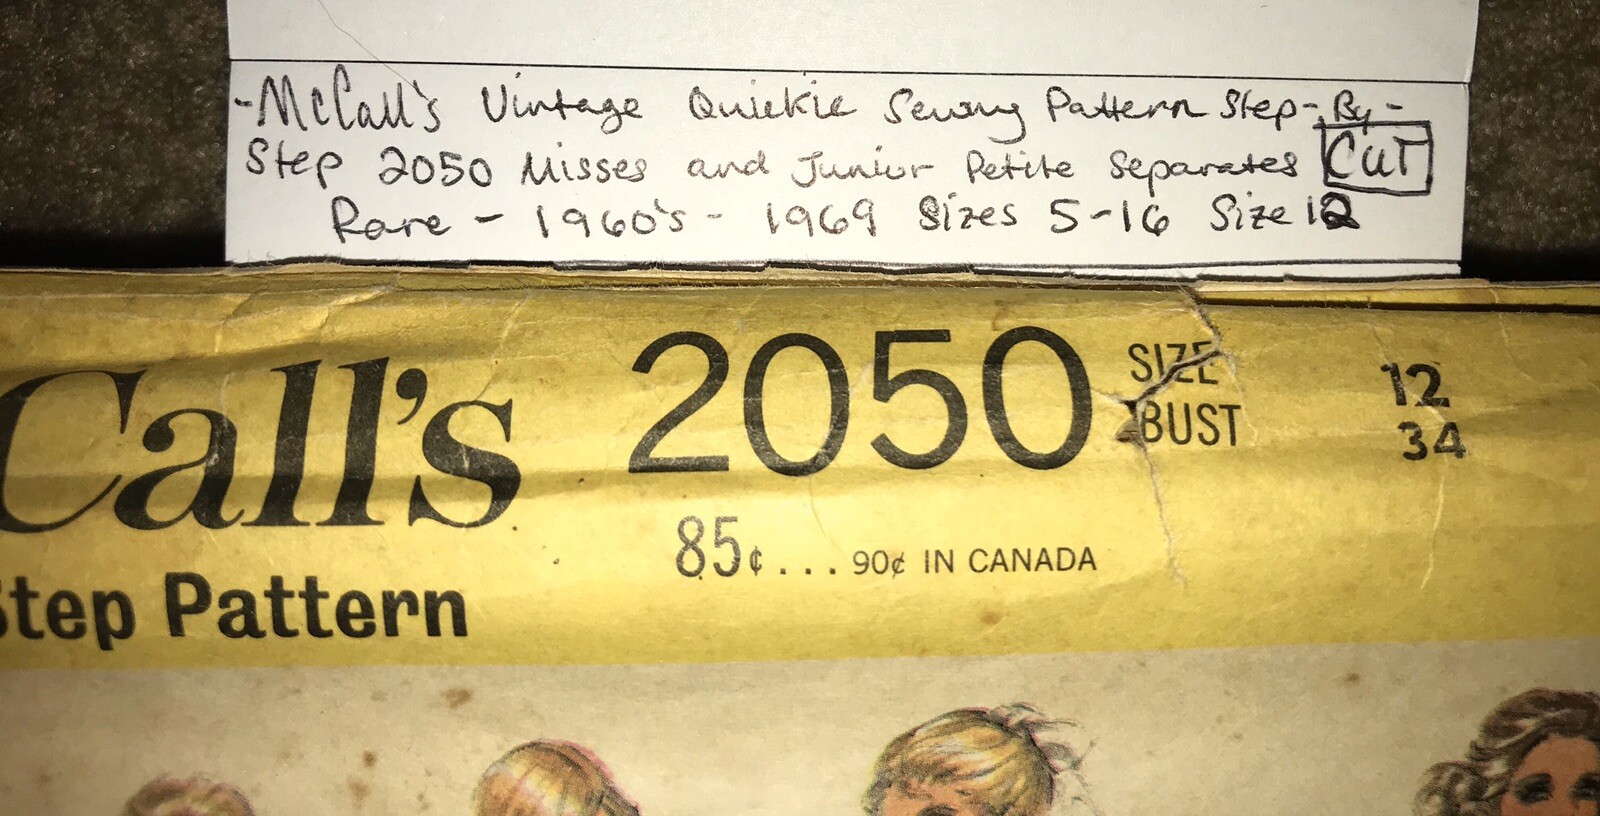 -McCall's Vintage Quickie Sewing Pattern Step-By-
Step 2050 Misses and Junior Petite Separates CUT
Rare - 1960's - 1969 Sizes 5-16 Size 12
Call's 2050 SIZE 12
BUST 34
85¢... 90¢ IN CANADA
Step Pattern